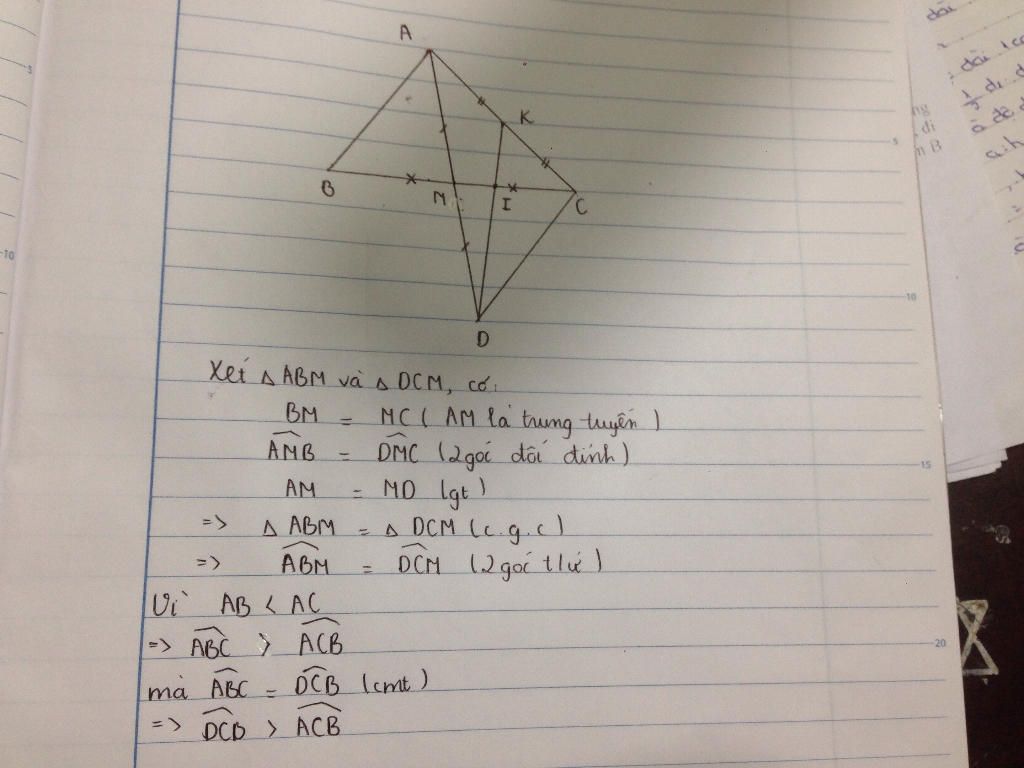 A
K
B
M
I
C
D
Xét △ ABM và △ DCM, có:
BM = MC ( AM là trung tuyến )
AMB = DMC (2 góc đối đỉnh)
AM = MD (gt)
=> △ ABM = △ DCM (c.g.c)
=> ABM = DCM (2 góc t/ứ)
Vì AB < AC
=> ABC > ACB
mà ABC = DCB (cmt)
=> DCB > ACB
5
10
15
20
5
10